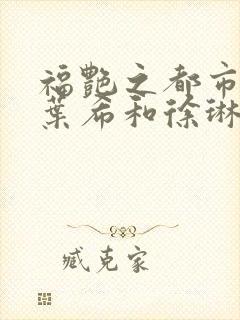 福艷之都市
葉希和徐琳
臧克家